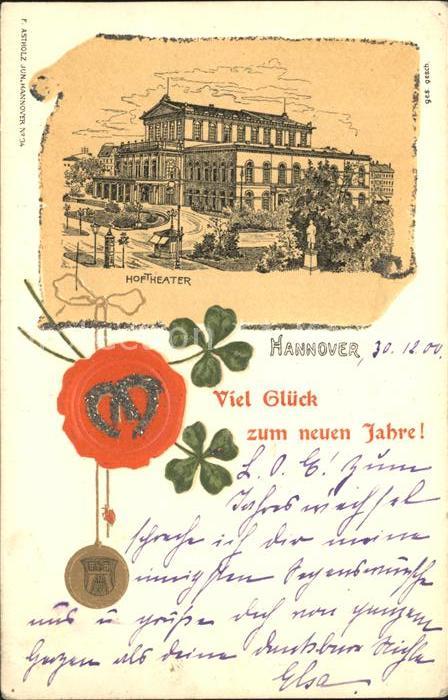 F. ASTHOLZ JUN. HANNOVER No 34
ges. gesch.
HOFTHEATER
HANNOVER, 30.12.00.
Viel Glück
zum neuen Jahre!
L. O. E! Zum
Jahreswechsel
spreche ich dir meine
innigsten Segenswünsche
aus u grüße dich von ganzem
Herzen als deine dankbare Nichte
Elsa